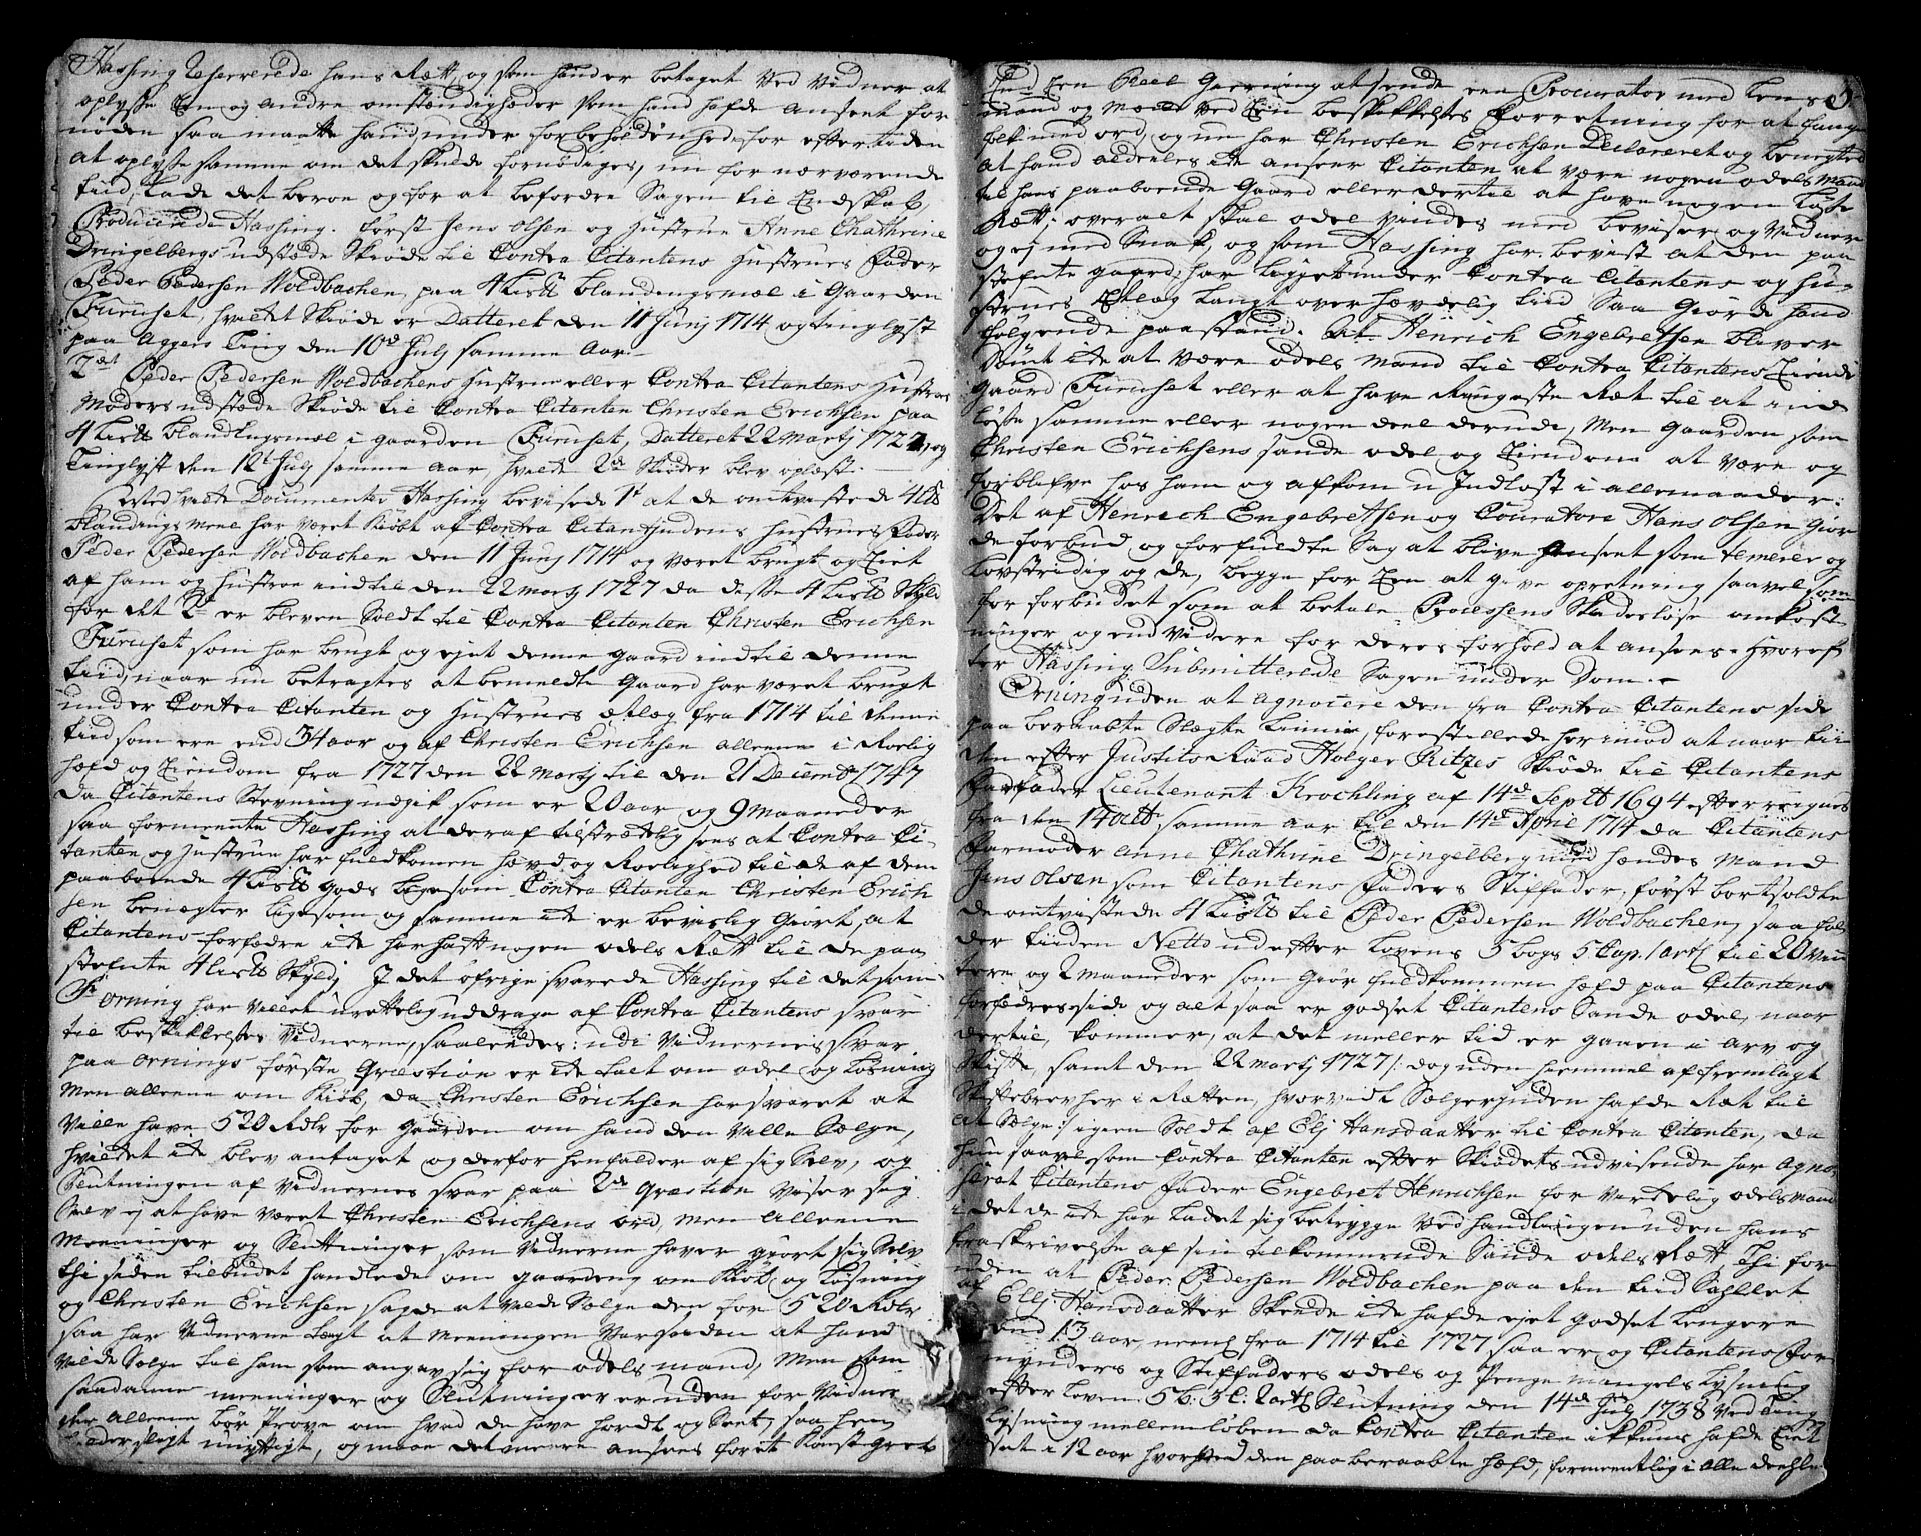 Hassing Reserverede hans Rætt, og som hånd er betaget ved Vidner at
oplysse Een og andre omstændigheder som hand hafde anseet for
nøden saa maatte hand under forbeholdenhed, for efftertiden
at oplysse samme om det skulde fornødiges, nu for nærværende
tiid, Lade det beroe og for at befordre Sagen til Endskab,
Producerede Hassing. først Jens Olsen og Hustrue Anne Chathrine
Dringelbergs udstæde Skiøde til Contra Citantens Hustrues Fader
Peder Pedersen Woldbachen, paa 4 Lispd blandingsmæl i Gaarden
Furuset, hvilket Skiøde er Datteret den 11 Junj 1714 og tinglyst
paa Aggers Ting den 10d Julj samme Aar.
2det Peder Pedersen Woldbachens Hustrue eller Contra Citantens Hustrues
Moders udstæde Skiøde til Contra Citanten Christen Erichsen paa
4 Lispd blandingsmæl i gaarden Furuset, Datteret 22 Martj 1727, og
Tinglyst den 12t Julj samme aar, hvilke 2de Skiøder blev oplæst.
hvilke Documenter Hassing beviisede 1t at de omtvistede 4 Lispd
blandings meel har været kiøbt af Contra Citantindens Hustrues Fader
Peder Pedersen Woldbachen den 11 Junj 1714 og været brugt og Eiet
af ham og Hustrue indtil den 22 Martj 1727 da disse 4 Lispd Skyld
for det 2d er bleven Soldt til Contra Citanten Christen Erichsen
Furuset som har brugt og ejet denne Gaard indtil denne
tiid, naar nu betragtes at bemeldte Gaard har været brugt
under Contra Citanten og Hustrues Ætlæg fra 1714 til denne
tiid som ere End 34 aar og af Christen Erichsen alleene i Roelig
hæfd og Eiendom fra 1727 den 22 Martj til den 21 Decembr 1747
da Citantens Stevning udgik som er 20 aar og 9 Maaneder
saa formeente Hassing at deraf tilstrækkelig sees at Contra Ci-
tanten og Hustrue har fuldkomen hævd og Roelighed til de af dem
paaboende 4 Lispd gods ligesom Contra Citanten Christen Erich
sen benægter ligesom og samme icke er bevislig Giort, at
Citantens forfædre icke har haft nogen odels Rætt til de paa
stefnte 4 Lispd Skyld, J det øfrige svarede Hassing til det som
Sr Orning har villet urettelig uddrage af Contra Citantens svar
til beskikkelses Vidnerne, saalendes: udi Vidnernes svar
paa Ornings første Qvæstion er icke talt om odel og Løsning
Men alleene om Kiøb, da Christen Erichsen har svaret at
Ville have 520 Rdlr for Gaarden om hand den Ville Sælge,
hvilcket icke blev antaget og derfor henfalder af sig Selv, og
Slutningen af Vidnernes svar paa 2d Qvæstion Viser sig
Selv ej at have været Christen Erichsens ord, Men alleene
Meeninger og Sluttninger som Vidnerne haver giort sig Selv
thi siden tilbudet handlede om gaardens om Kiøb og Løsning
og Christen Erichsen sagde at Vilde Sælge den for 520 Rdlr
saa har Vidnerne Lagt at Meeningen Var saadan at hand
Vilde Sælge til ham som angav sig for odels Mand, Men som
saadanne Meeninger og Slutninger er uden for Vidner
der alleene bør prove om hvad de have hørdt og Seet, saa hen
slagt unyttigt, og maae det meere ansees for it Konst Greb
End Een Reel Gierning at sende een Procurator med Lens
mand og Mænd ved Een beskikkelses forretning for at fange
folk med ord, og nu har Christen Erichsen Declareret og benegted
at hand aldeeles icke anseer Citanten at være nogen odels Mand
til hans paaboende Gaard eller dertil at have nogen Løsn
Rætt: overalt skal odel Vindes med beviser og Vidner
og ej med Snak, og som Hassing har bevist at den paa
stefnte gaard har ligget under Contra Citantens og Hu-
strues Ætlag langt over hævdelig tiid Saa Giorde hand
følgende paastand. at Henrich Engebretsen bliver
Dømt icke at være odels Mand til Contra Citantens Eiende
Gaard Furuset eller at have Ringeste Ræt til at ind
løsse samme eller nogen deel derudi, Men Gaarden som
Christen Erichsens sande odel og Eiendom at være og
forblifve hos ham og afkom u Jndløst i alle maader:
Det af Henrich Engebretsen og Couratore Hans Olsen Gior
de forbud og forfuldte Sag at blive anseet som temerer og
Lovstridig og de, begge for Een at give opretning saavel som
for forbudet som at betale Processens Skadesløse omkost
ninger og end Videre for deres forhold at ansees. Hvoref
ter Hassing Submitterede Sagen under Dom.
Orning uden at agnocere den fra Contra Citantens side
paa beraabte Slægte Linnie, forestillede herimod at naar tii
den efter Justits Raad Holger Ritzes Skiøde til Citantens
Farfader Lieutenant Krochling af 14d Septb 1694 efterreignes
fra den 14 octbr samme aar til den 14d April 1714 da Citantens
Farmoder Anne Chathrine Dringelberg med hendes Mand
Jens Olsen som Citantens Faders Stiffader, først bortsoldte
de omtvistede 4 Lispd til Peder Pedersen Woldbachen, saa fal
der tiiden Netto ud efter Lovens 5 bogs 5 Cap. 1 artl til 20 Vin
tere og 2 maaneder som Giør fuldkommen hæfd paa Citantens
forfædres side og alt saa er godset Citantens Sande odel, naar
dertil, kommer, at det meller tid er gaaen i Arv og
Skifte, samt den 22 Martj 1727 /: dog uden hiemmel af fremlagt
Skiftebrev her i Rætten, hvorvidt Sælgerinden hafde Ræt til
at Sælge :/ igien Soldt af Elj Hansdaatter til Contra Citanten, da
hun saavel som Contra Citanten efter Skiødets udvisende har agno-
seret Citantens Fader Engebret Henrichsen for Virkelig odels Mand
i det de icke har Ladet sig betrygge Ved handlingen uden hans
fraskrivelse af sin tilkommende Sande odels Rætt, Thi for
uden at Peder Pedersen Woldbachen paa den tiid
af Elj Hansdaatter Skeede icke hafde ejet godset Lengere
End 13 aar, neml fra 1714 til 1727 saa er og Citantens For
mynders og Stiffaders odels og Penge Mangels Lysning
efter Loven 5 b: 3 C: 2 artls Slutning den 14d Julj 1738 Ved Ting
Lysning mellemløben da Contra Citanten ickkuns hafde Eiet
det i 12 aar hvorved den paaberaabte hæfd, formeentlig i alle deele